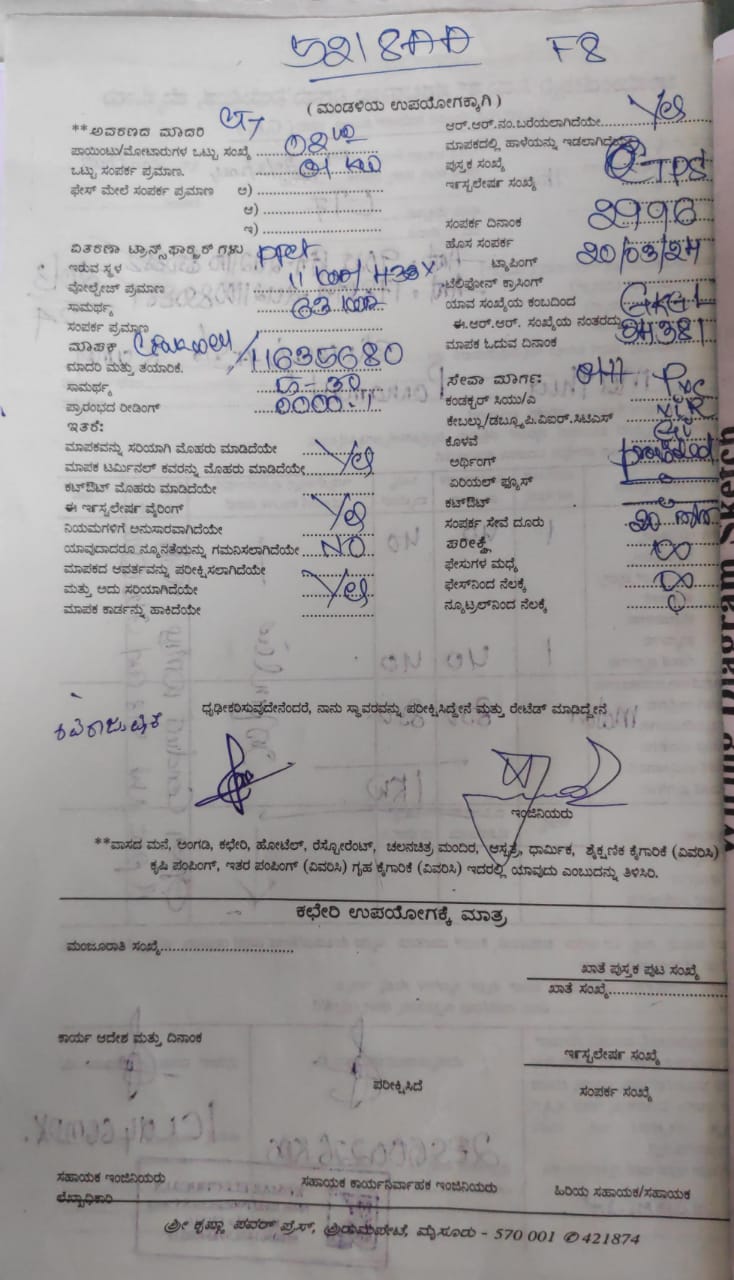 F8
( ಮಂಡಳಿಯ ಉಪಯೋಗಕ್ಕಾಗಿ )
**ಅವಕರಣದ ಮಾದರಿ
ಪಾಯಿಂಟು/ಮೋಟಾರುಗಳ ಒಟ್ಟು ಸಂಖ್ಯೆ
ಒಟ್ಟು ಸಂಪರ್ಕ ಪ್ರಮಾಣ. 01 KW
ಫೇಸ್ ಮೇಲೆ ಸಂಪರ್ಕ ಪ್ರಮಾಣ ಅ)
ಆ)
ಇ)
ವಿತರಣಾ ಟ್ರಾನ್ಸ್‌ಫಾರ್ಮರ್ ಗಳು
ಇರುವ ಸ್ಥಳ
ವೋಲ್ಟೇಜ್ ಪ್ರಮಾಣ
ಸಾಮರ್ಥ್ಯ 63
ಸಂಪರ್ಕ ಪ್ರಮಾಣ
ಮಾಪಕ
ಮಾದರಿ ಮತ್ತು ತಯಾರಿಕೆ. 11635680
ಸಾಮರ್ಥ್ಯ 5-30
ಪ್ರಾರಂಭದ ರೀಡಿಂಗ್ 0000.1
ಇತರೆ:
ಮಾಪಕವನ್ನು ಸರಿಯಾಗಿ ಮೊಹರು ಮಾಡಿದೆಯೇ
ಮಾಪಕ ಟರ್ಮಿನಲ್ ಕವರನ್ನು ಮೊಹರು ಮಾಡಿದೆಯೇ Yes
ಕಟ್‌ಔಟ್ ಮೊಹರು ಮಾಡಿದೆಯೇ
ಈ ಇನ್‌ಸ್ಟಲೇಷನ್ ವೈರಿಂಗ್ Yes
ನಿಯಮಗಳಿಗೆ ಅನುಸಾರವಾಗಿದೆಯೇ
ಯಾವುದಾದರೂ ನ್ಯೂನತೆಯನ್ನು ಗಮನಿಸಲಾಗಿದೆಯೇ NO
ಮಾಪಕದ ಆವರ್ತವನ್ನು ಪರೀಕ್ಷಿಸಲಾಗಿದೆಯೇ
ಮತ್ತು ಅದು ಸರಿಯಾಗಿದೆಯೇ Yes
ಮಾಪಕ ಕಾರ್ಡನ್ನು ಹಾಕಿದೆಯೇ
ಆರ್.ಆರ್.ನಂ.ಬರೆಯಲಾಗಿದೆಯೇ Yes
ಮಾಪಕದಲ್ಲಿ ಹಾಳೆಯನ್ನು ಇಡಲಾಗಿದೆಯೇ
ಪುಸ್ತಕ ಸಂಖ್ಯೆ
ಇನ್‌ಸ್ಟಲೇಷನ್ ಸಂಖ್ಯೆ
ಸಂಪರ್ಕ ದಿನಾಂಕ
ಹೊಸ ಸಂಪರ್ಕ
ಟ್ಯಾಪಿಂಗ್ 20/03/24
ಟೆಲಿಫೋನ್ ಕ್ರಾಸಿಂಗ್
ಯಾವ ಸಂಖ್ಯೆಯ ಕಂಬದಿಂದ
ಈ.ಆರ್.ಆರ್. ಸಂಖ್ಯೆಯ ನಂತರದ
ಮಾಪಕ ಓದುವ ದಿನಾಂಕ
ಸೇವಾ ಮಾರ್ಗ: OH
ಕಂಡಕ್ಟರ್ ಸಿಯು/ಎ PVC
ಕೇಬಲ್ಲು/ಡಬ್ಲ್ಯೂ.ಪಿ.ವಿಐಆರ್.ಸಿಟಿಎಸ್ VIR
ಕೊಳವೆ GI
ಅರ್ಥಿಂಗ್ provided
ಏರಿಯಲ್ ಫ್ಯೂಸ್
ಕಟ್‌ಔಟ್
ಸಂಪರ್ಕ ಸೇವೆ ದೂರು 20
ಪರೀಕ್ಷೆ
ಫೇಸುಗಳ ಮಧ್ಯೆ ∞
ಫೇಸ್‌ನಿಂದ ನೆಲಕ್ಕೆ ∞
ನ್ಯೂಟ್ರಲ್‌ನಿಂದ ನೆಲಕ್ಕೆ 0
ಧೃಢೀಕರಿಸುವುದೇನೆಂದರೆ, ನಾನು ಸ್ಥಾವರವನ್ನು ಪರೀಕ್ಷಿಸಿದ್ದೇನೆ ಮತ್ತು ರೇಟೆಡ್ ಮಾಡಿದ್ದೇನೆ
ಇಂಜಿನಿಯರು
**ವಾಸದ ಮನೆ, ಅಂಗಡಿ, ಕಛೇರಿ, ಹೋಟೆಲ್, ರೆಸ್ಟೋರೆಂಟ್, ಚಲನಚಿತ್ರ ಮಂದಿರ, ಆಸ್ಪತ್ರೆ, ಧಾರ್ಮಿಕ, ಶೈಕ್ಷಣಿಕ ಕೈಗಾರಿಕೆ (ವಿವರಿಸಿ)
ಕೃಷಿ ಪಂಪಿಂಗ್, ಇತರ ಪಂಪಿಂಗ್ (ವಿವರಿಸಿ) ಗೃಹ ಕೈಗಾರಿಕೆ (ವಿವರಿಸಿ) ಇದರಲ್ಲಿ ಯಾವುದು ಎಂಬುದನ್ನು ತಿಳಿಸಿರಿ.
ಕಛೇರಿ ಉಪಯೋಗಕ್ಕೆ ಮಾತ್ರ
ಮಂಜೂರಾತಿ ಸಂಖ್ಯೆ
ಖಾತೆ ಪುಸ್ತಕ ಪುಟ ಸಂಖ್ಯೆ
ಖಾತೆ ಸಂಖ್ಯೆ
ಕಾರ್ಯ ಆದೇಶ ಮತ್ತು ದಿನಾಂಕ
ಇನ್‌ಸ್ಟಲೇಷನ್ ಸಂಖ್ಯೆ
ಪರೀಕ್ಷಿಸಿದೆ
ಸಂಪರ್ಕ ಸಂಖ್ಯೆ
ಸಹಾಯಕ ಇಂಜಿನಿಯರು
ಸಹಾಯಕ ಕಾರ್ಯನಿರ್ವಾಹಕ ಇಂಜಿನಿಯರು
ಹಿರಿಯ ಸಹಾಯಕ/ಸಹಾಯಕ
ಲೆಖ್ಖಾಧಿಕಾರಿ
ಶ್ರೀ ಕೃಷ್ಣಾ ಪವರ್ ಪ್ರೆಸ್, ಶ್ರೀರಾಮಪೇಟೆ, ಮೈಸೂರು - 570 001 ✆ 421874
Wiring Diagram Sketch